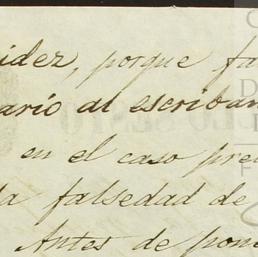 idez, porque fa
ario al escriban
en el caso pre
la falsedad de
Antes de pon